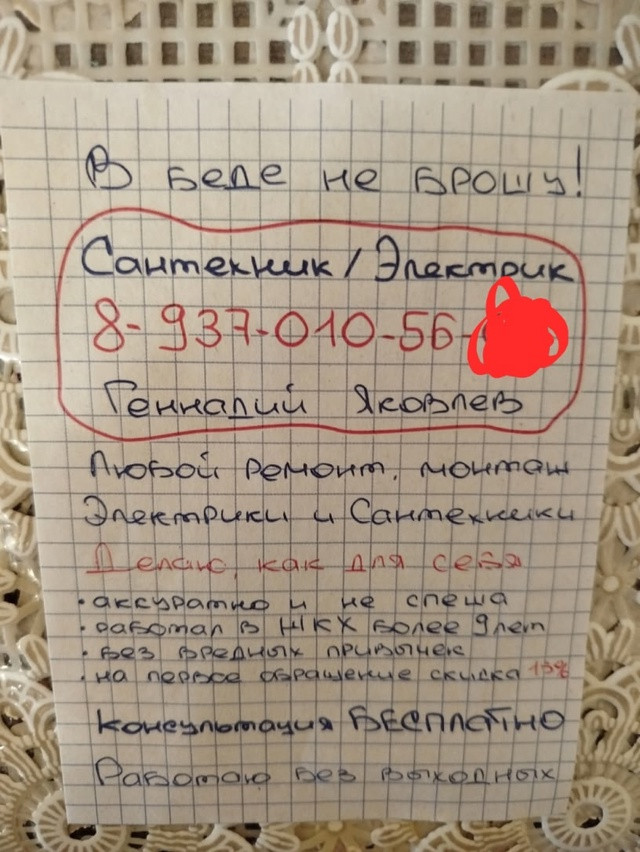 В беде не брошу!
Сантехник/Электрик
8-937-010-56-
Геннадий Яковлев
Любой ремонт, монтаж
Электрики и Сантехники
Делаю, как для себя
• аккуратно и не спеша
• работал в ЖКХ более 9 лет
• без вредных привычек
• на первое обращение скидка 15%
Консультация БЕСПЛАТНО
Работаю без выходных